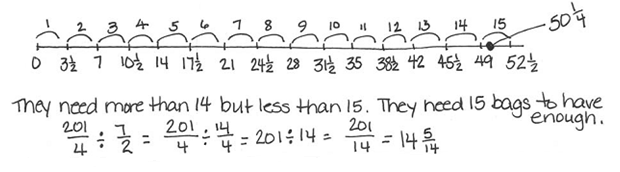 1 2 3 4 5 6 7 8 9 10 11 12 13 14 15 50 1/4
0 3 1/2 7 10 1/2 14 17 1/2 21 24 1/2 28 31 1/2 35 38 1/2 42 45 1/2 49 52 1/2
They need more than 14 but less than 15. They need 15 bags to have
enough.
201/4 ÷ 7/2 = 201/4 ÷ 14/4 = 201 ÷ 14 = 201/14 = 14 5/14